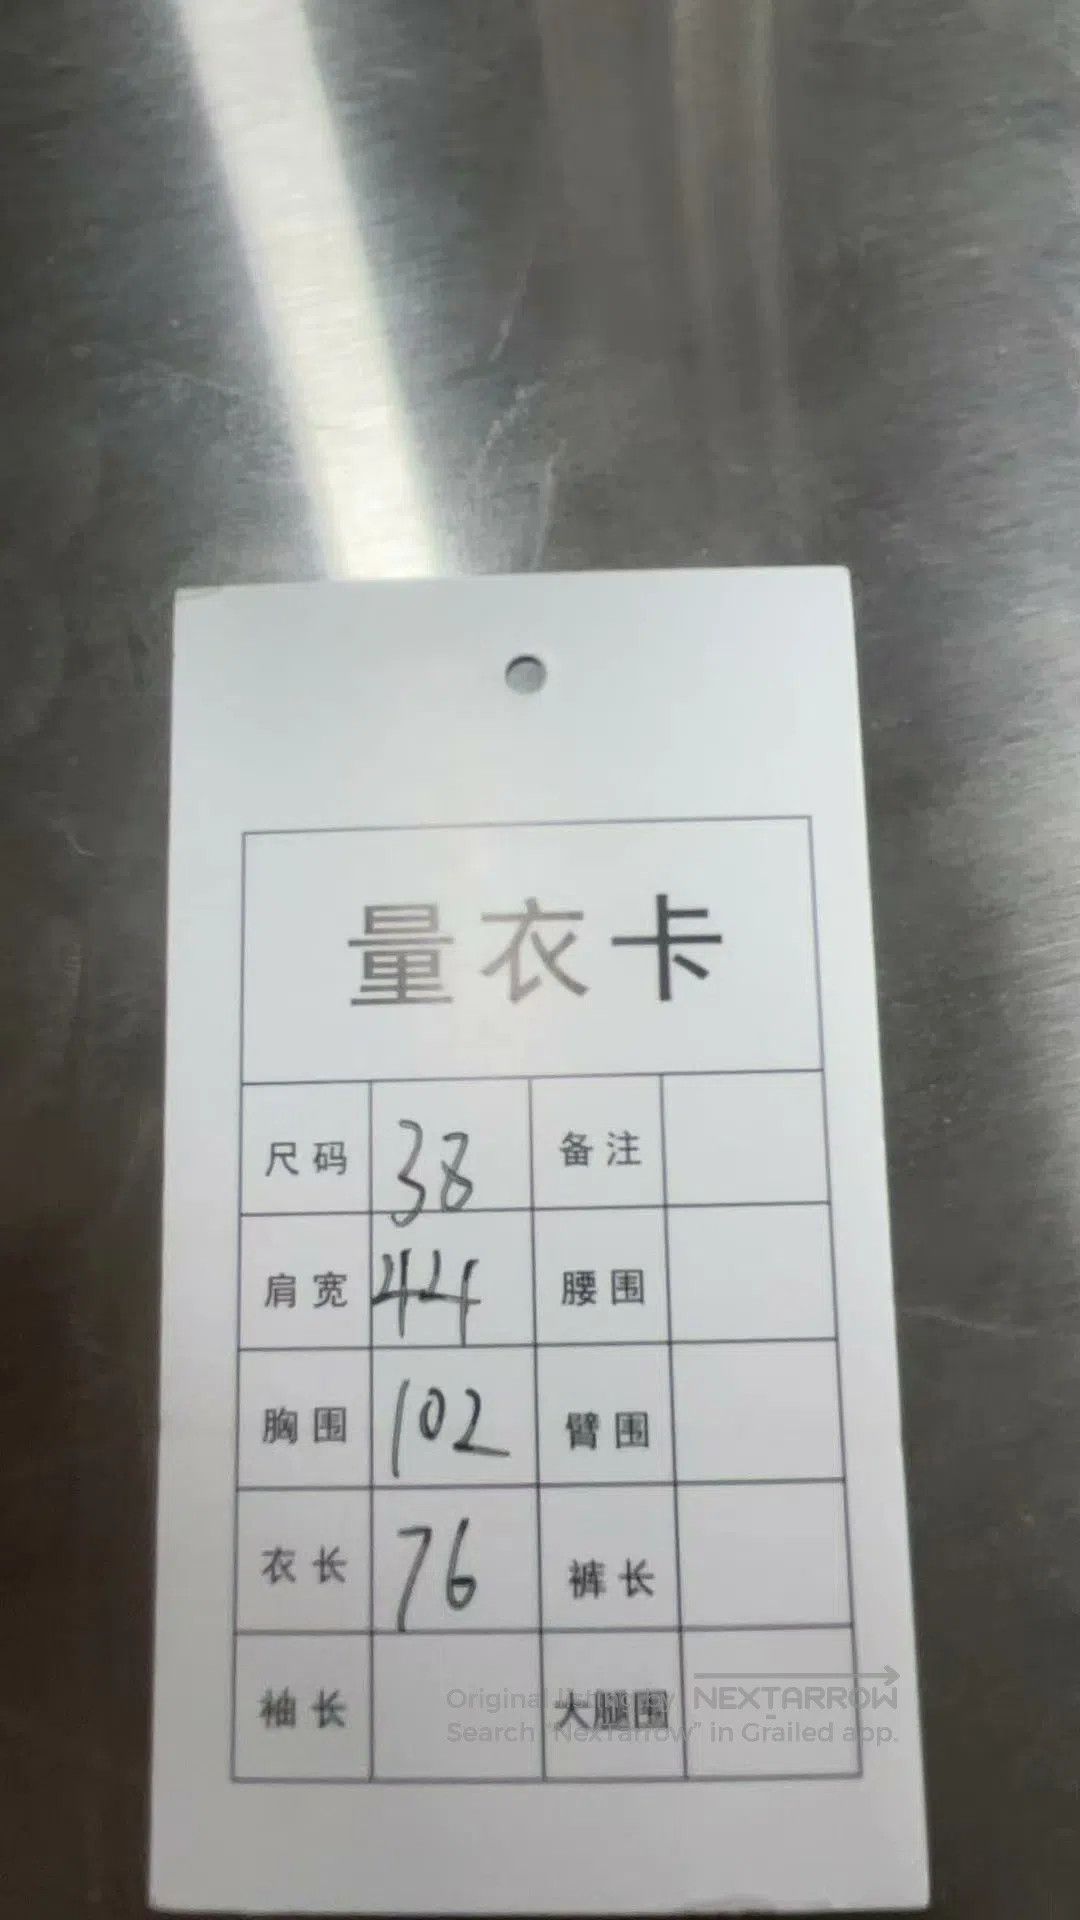 量衣卡
尺码 38 备注
肩宽 44 腰围
胸围 102 臂围
衣长 76 裤长
袖长 大腿围
Original listing by NEXTARROW
Search "NexTarrow" in Grailed app.